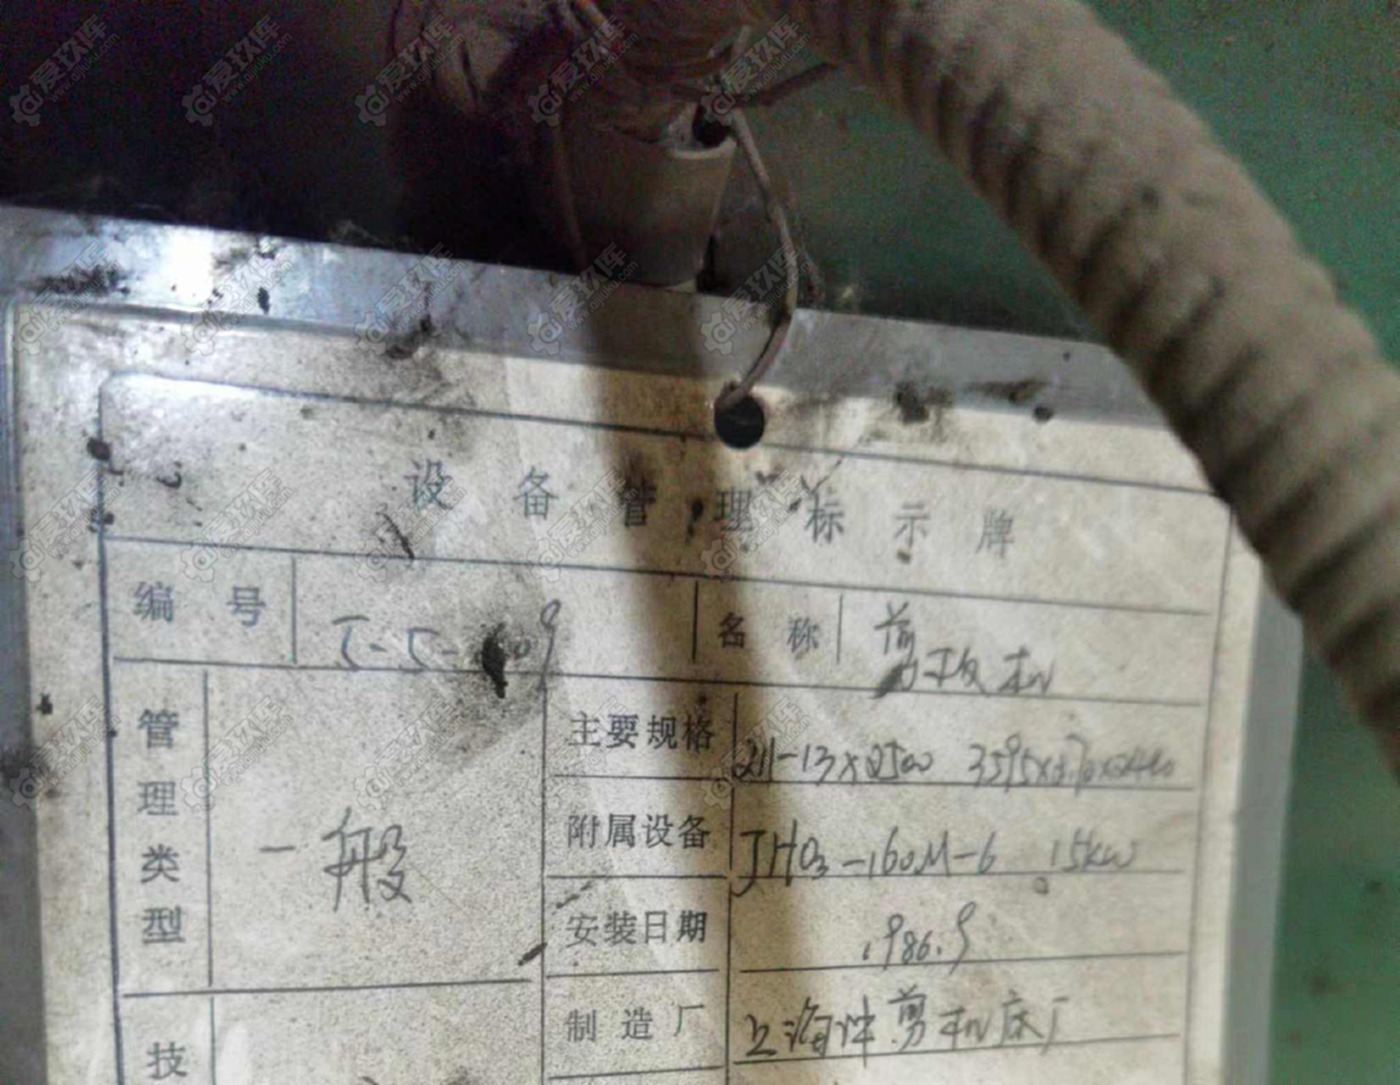 设备管理标示牌
编号 J-5- 09 名称 剪板机
管理类型 一般
主要规格 Q11-13×2500
附属设备 JHO3-160M-6 15kW
安装日期 1986.9
制造厂 上海冲剪机床厂
技